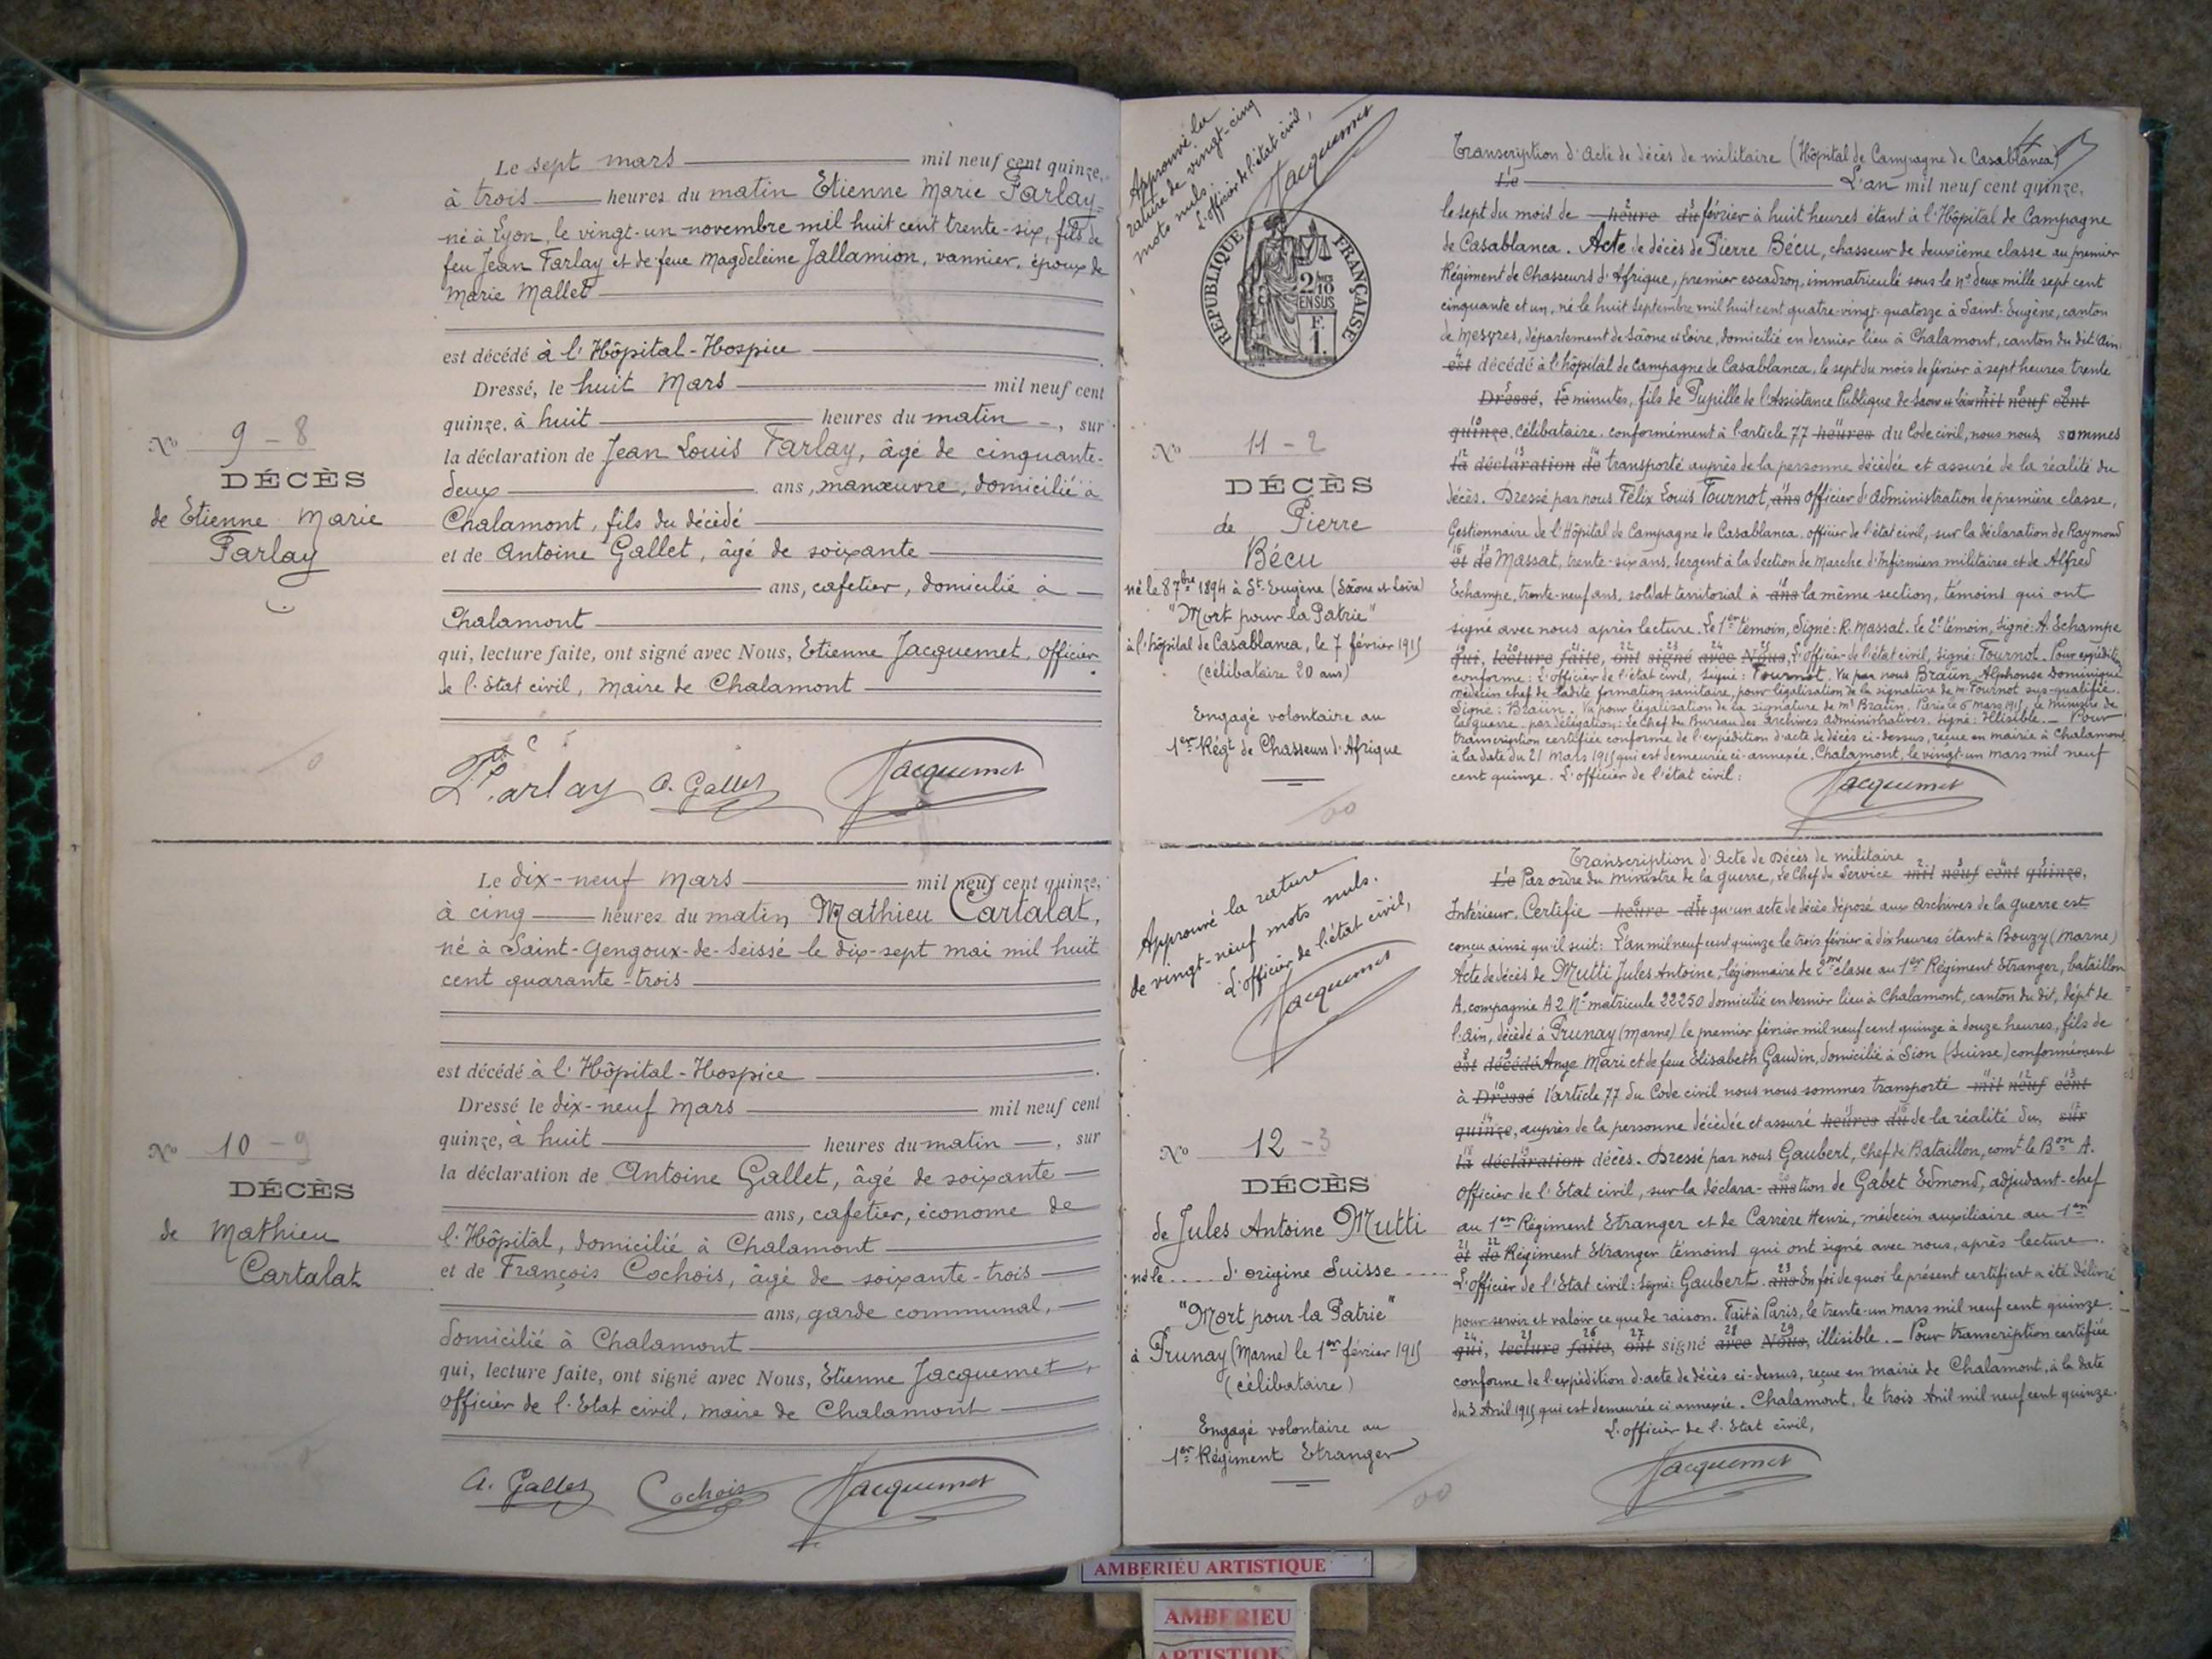 Le sept mars mil neuf cent quinze,
à trois heures du matin Etienne Marie Farlay
né à Lyon, le vingt-un novembre mil huit cent trente-six, fils de
feu Jean Farlay et de feue Magdeleine Jallamion, vannier, époux de
Marie Mallet
est décédé à l'Hôpital-Hospice
Dressé, le huit Mars mil neuf cent
quinze, à huit heures du matin, sur
la déclaration de Jean Louis Farlay, âgé de cinquante-
deux ans, manœuvre, domicilié à
Chalamont, fils du décédé
et de Antoine Gallet, âgé de soixante
ans, cafetier, domicilié à
Chalamont
qui, lecture faite, ont signé avec Nous, Etienne Jacquemet, officier
de l'Etat civil, Maire de Chalamont
No 9 - 8
DÉCÈS
de Etienne Marie
Farlay
Farlay A. Gallet Jacquemet
Le dix-neuf Mars mil neuf cent quinze,
à cinq heures du matin, Mathieu Cartalat,
né à Saint-Gengoux-de-Seissé le dix-sept mai mil huit
cent quarante-trois
est décédé à l'Hôpital-Hospice
Dressé le dix-neuf Mars mil neuf cent
quinze, à huit heures du matin, sur
la déclaration de Antoine Gallet, âgé de soixante
ans, cafetier, économe de
l'Hôpital, domicilié à Chalamont
et de François Cochois, âgé de soixante-trois
ans, garde communal,
domicilié à Chalamont
qui, lecture faite, ont signé avec Nous, Etienne Jacquemet,
officier de l'Etat civil, maire de Chalamont
No 10 - 9
DÉCÈS
de Mathieu
Cartalat
A. Gallet Cochois Jacquemet
Approuvé la
rature de vingt-cinq
mots nuls.
L'officier de l'état civil,
Jacquemet
REPUBLIQUE FRANÇAISE
2/10
EN SUS
F.
1.
No 11 - 2
DÉCÈS
de Pierre
Bécu
né le 8 7bre 1894 à St-Eugène (Saône et Loire)
"Mort pour la Patrie"
à l'hôpital de Casablanca, le 7 février 1915
(célibataire 20 ans)
Engagé volontaire au
1er Régt de Chasseurs d'Afrique
Transcription d'Acte de décès de militaire (Hôpital de Campagne de Casablanca)
Le L'an mil neuf cent quinze,
le sept du mois de heure du février à huit heures étant à l'Hôpital de Campagne
de Casablanca. Acte de décès de Pierre Bécu, chasseur de deuxième classe au premier
Régiment de Chasseurs d'Afrique, premier escadron, immatriculé sous le no deux mille sept cent
cinquante et un, né le huit Septembre mil huit cent quatre-vingt-quatorze à Saint-Eugène, canton
de Mesvres, département de Saône et Loire, domicilié en dernier lieu à Chalamont, canton du dit Ain
est décédé à l'hôpital de Campagne de Casablanca, le sept du mois de février à sept heures trente
Dressé, le minutes, fils de Pupille de l'Assistance Publique de Saône et Loire mil neuf cent
quinze, célibataire, conformément à l'article 77 heures du Code civil, nous nous sommes
la déclaration de transporté auprès de la personne décédée et assuré de la réalité du
décès. Dressé par nous Félix Louis Tournot, ans officier d'Administration de première classe,
Gestionnaire de l'Hôpital de Campagne de Casablanca, officier de l'état civil, sur la déclaration de Raymond
et de Massat, trente-six ans, sergent à la Section de Marche d'Infirmiers militaires et de Alfred
Echampe, trente-neuf ans, soldat territorial à ans la même section, témoins qui ont
signé avec nous après lecture. Le 1er témoin, Signé: R. Massat. Le 2e témoin, signé: A. Echampe
qui, lecture faite, ont signé avec Nous, L'officier de l'état civil, signé: Tournot. Pour expédition
conforme: L'officier de l'état civil, signé: Tournot. Vu par nous Braün, Alphonse Dominique
médecin chef de ladite formation sanitaire, pour légalisation de la signature de M. Tournot sus-qualifié.
Signé: Braün. Vu pour légalisation de la signature de Mr Braün. Paris le 6 mars 1915, le ministre de
la guerre, par délégation: Le Chef du Bureau des Archives Administratives. Signé: Illisible. — Pour
transcription certifiée conforme de l'expédition d'acte de décès ci-dessus, reçue en mairie à Chalamont
à la date du 21 Mars 1915 qui est demeurée ci-annexée. Chalamont, le vingt-un mars mil neuf
cent quinze. L'officier de l'état civil:
Jacquemet
Approuvé la rature
de vingt-neuf mots nuls.
L'officier de l'état civil,
Jacquemet
No 12 - 3
DÉCÈS
de Jules Antoine Mutti
né le .... d'origine Suisse ....
"Mort pour la Patrie"
à Prunay (Marne) le 1er février 1915
(célibataire)
Engagé volontaire au
1er Régiment Etranger
Transcription d'Acte de Décès de militaire
Le Par ordre du Ministre de la guerre, le Chef du Service mil neuf cent quinze,
Intérieur, Certifie heure du qu'un acte de décès déposé aux Archives de la Guerre est
conçu ainsi qu'il suit: L'an mil neuf cent quinze le trois février à dix heures étant à Bouzy (Marne)
Acte de décès de Mutti Jules Antoine, légionnaire de 2me classe au 1er Régiment Etranger, bataillon
A, compagnie A 2 No matricule 22250 domicilié en dernier lieu à Chalamont, canton du dit, dépt de
l'Ain, décédé à Prunay (Marne) le premier février mil neuf cent quinze à douze heures, fils de
est décédé Ange Mari et de feue Elisabeth Gaudin, domicilié à Sion (Suisse) conformément
à Dressé l'article 77 du Code civil nous nous sommes transporté mil neuf cent
quinze, auprès de la personne décédée et assuré heures du de la réalité du, sur
la déclaration décès. Dressé par nous Gaubert, Chef de Bataillon, comt le Bon A.
Officier de l'Etat civil, sur la déclara- ans tion de Gabet Edmond, adjudant-chef
au 1er Régiment Etranger et de Carrère Henri, médecin auxiliaire au 1er
et de Régiment Etranger témoins qui ont signé avec nous, après lecture.
L'officier de l'Etat civil: signé: Gaubert. ans En foi de quoi le présent certificat a été délivré
pour servir et valoir ce que de raison. Fait à Paris, le trente-un mars mil neuf cent quinze.
qui, lecture faite, ont signé avec Nous, illisible. — Pour transcription certifiée
conforme de l'expédition d'acte de décès ci-dessus, reçue en mairie de Chalamont, à la date
du 3 Avril 1915 qui est demeurée ci annexée. Chalamont, le trois Avril mil neuf cent quinze.
L'officier de l'Etat civil,
Jacquemet
AMBERIEU ARTISTIQUE
AMBERIEU
ARTISTIQUE